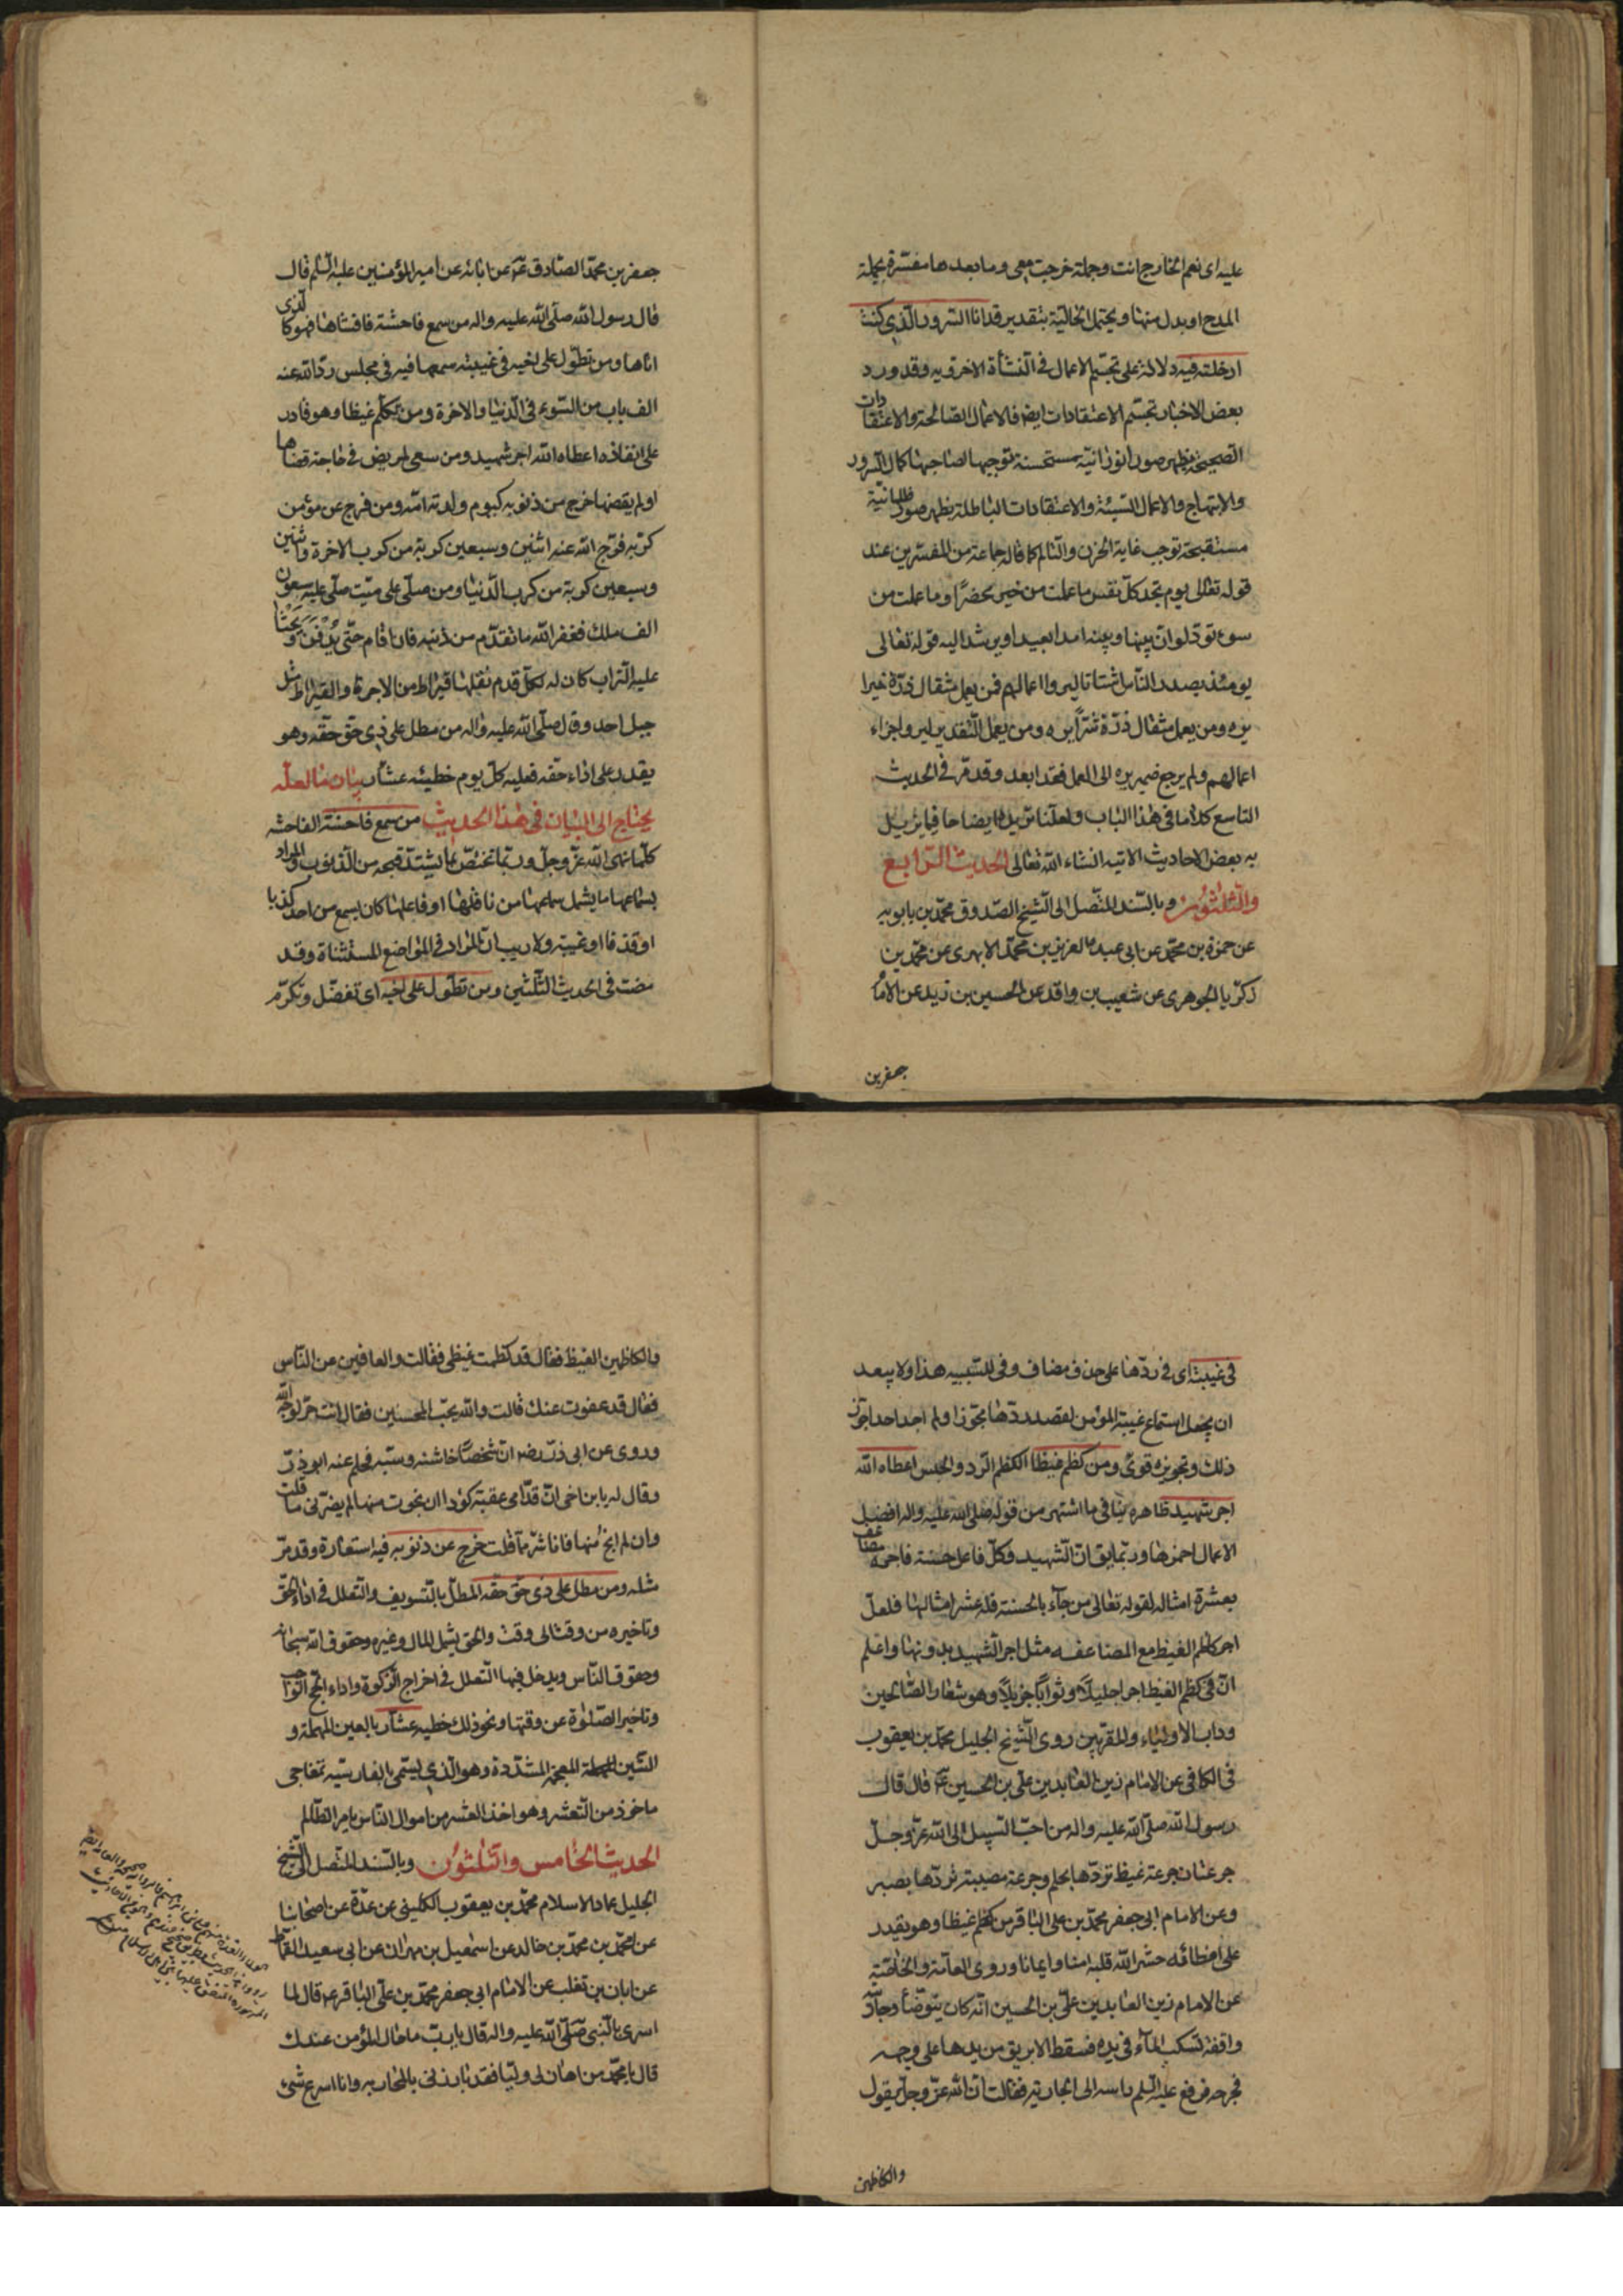 عليه اى نعم الخارج انت وجملة خرجت معى وما بعدها مفسّرة بجملة
المدح او بدل منها ويحتمل الحاليّة بتقدير قد انا السّرور الّذى كنت
ادخلته فيه دلالة على تجسّم الاعمال فى النّشأة الاخرويه وقد ورد
بعض الاخبار تجسّم الاعتقادات ايض فالاعمال الصّالحة والاعتقادات
الصّحيحة تظهر صورا نورانيّة مستحسنة توجب لصاحبها كمال السّرور
والابتهاج والاعمال السّيئة والاعتقادات الباطلة تظهر صورا ظلمانيّة
مستقبحة توجب غاية الحزن والتالّم كما قاله جماعة من المفسّرين عند
قوله تعالى يوم تجد كلّ نفس ما عملت من خير محضرًا وما عملت من
سوء تودّ لو انّ بينها وبينه امدا بعيدا ويرشد اليه قوله تعالى
يومئذ يصدر النّاس اشتاتا ليروا اعمالهم فمن يعمل مثقال ذرّة خيرا
يره ومن يعمل مثقال ذرّة شرّاً يره ومن يعمل التّقدير ليروا جزاء
اعمالهم ولم يرجع ضمير يره الى العمل فقد ابعد وقد مرّ فى الحديث
التاسع كلام ما فى هذا الباب ولعلّنا نزيل ايضاحا فيما نزيل
به بعض الاحاديث الاتيه انشاء الله تعالى الحديث الرّابع
والثّلثون وبالسّند المتّصل الى الشّيخ الصّدوق محمّد بن بابويه
عن حمزة بن محمّد عن ابى عبد العزيز بن محمّد الابهرى عن محمّد بن
زكريا الجوهرى عن شعيب بن واقد عن الحسين بن زيد عن الامام
جعفر بن
جعفر بن محمّد الصّادق عن ابائه عن امير المؤمنين عليه السّلم قال
قال رسول الله صلّى الله عليه واله من سمع فاحشة فافشاها فهو كالّذى
اتاها ومن تطوّل على اخيه فى غيبته سمعها فيه فى مجلس ردّ الله عنه
الف باب من السّوء فى الدّنيا والاخرة ومن كظم غيظا وهو قادر
على انفاذه اعطاه الله اجر شهيد ومن سعى لمريض فى حاجته قضاها
او لم يقضها خرج من ذنوبه كيوم ولدته امّه ومن فرج عن مؤمن
كربه فرّج الله عنه اثنين وسبعين كربة من كرب الاخرة واثنين
وسبعين كربة من كرب الدّنيا ومن صلّى على ميّت صلّى عليه سبعون
الف ملك فغفر الله ما تقدّم من ذنبه فان اقام حتّى يُدفَن ويحثا
عليه التّراب كان له بكلّ قدم نقلها قيراط من الاجر والقيراط مثل
جبل احد وقال صلّى الله عليه واله من مطل على ذى حقّ حقّه وهو
يقدر على اداء حقّه فعليه كلّ يوم خطيئه عشّار بيان ما لعلّه
يحتاج الى البيان فى هذا الحديث من سمع فاحشة الفاحشه
كلّ ما نهى الله عزّ وجلّ وربّما تختصّ بما يشتدّ قبحه من الذّنوب والمراد
بسماعها ما يشمل سماعها من ناقلها او فاعلها كان يسمع من احد كذبا
او قذفا او غيبته ولا ريب انّ المراد فى المواضع المستثناة وقد
مضت فى الحديث الثّلثين ومن تطوّل على اخيه اى تفضّل وتكرّم
فى غيبته اى فى ردّها على حذف مضاف وفى للسّببيه هذا ولا يبعد
ان يجعل استماع غيبة المؤمن لقصد ردّها مجوّزا ولم اجد احدا جوّز
ذلك وتجويزه قوىّ ومن كظم غيظا الكظم الرّد والحبس اعطاه الله
اجر شهيد ظاهره ينافى ما اشتهر من قوله صلى الله عليه واله افضل
الاعمال احمزها وربّما يق انّ الشّهيد وكلّ فاعل حسنة فاجره مضاعف
بعشرة امثاله لقوله تعالى من جآء بالحسنة فله عشر امثالها فلعلّ
اجر كاظم الغيظ مع المضاعفه مثل اجر الشّهيد بدونها واعلم
انّ فى كظم الغيظ اجرا جليلاً وثواباً جزيلاً وهو شعار الصّالحين
وداب الاولياء والمقرّبين روى الشّيخ الجليل محمّد بن يعقوب
فى الكافى عن الامام زين العابدين علىّ بن الحسين ع قال قال
رسول الله صلّى الله عليه واله من احبّ السّبيل الى الله عزّ وجلّ
جرعتان جرعة غيظ تردّها بحلم وجرعة مصيبة تردّها بصبر
وعن الامام ابى جعفر محمّد بن على الباقر من كظم غيظا وهو يقدر
على امضائه حشر الله قلبه امنا وايمانا وروى العامّة والخاصّة
عن الامام زين العابدين علىّ بن الحسين انّه كان يتوضّأ وجارية
واقفة تسكب الماء فى يده فسقط الابريق من يدها على وجهه
فجرحه فرفع عليه السّلم راسه الى الجاريه فقالت انّ الله عزّ وجلّ يقول
والكاظمين
والكاظمين الغيظ فقال قد كظمت غيظى فقالت والعافين عن النّاس
فقال قد عفوت عنك قالت والله يحبّ المحسنين فقال انت حرّ لوجه الله
وروى عن ابى ذرّ رضه انّ شخصًا خاشنه وسبّه فحلم عنه ابو ذرّ
وقال له يا بن اخى انّ قدّامى عقبة كؤدا ان نجوت منها لم يضرّنى ما قلت
وان لم انج منها فانا شرّ ممّا قلت خرج عن ذنوبه فيه استعارة وقد مرّ
مثله ومن مطل على ذى حقّ حقّه المطل بالتّسويف والتّعلّل فى اداء الحقّ
وتاخيره من وقت الى وقت والحق يشمل المال وغيره وحقوق الله سبحانه
وحقوق النّاس ويدخل فيها التّعلّل فى اخراج الزّكوة واداء الحجّ الواجب
وتاخير الصّلوة عن وقتها ونحو ذلك خطيه عشّار بالعين المهملة و
الشّين المعجمه المشدّدة وهو الّذى يسمّى بالفارسيّه تمغاجى
ماخوذ من التّعشر وهو اخذ العشر من اموال النّاس بامر الظّالم
الحديث الخامس والثّلثون وبالسّند المتّصل الى الشّيخ
الجليل عماد الاسلام محمّد بن يعقوب الكلينى عن عدّة عن اصحابنا
عن احمد بن محمّد بن خالد عن اسمعيل بن مهران عن ابى سعيد القماط
عن ابان بن تغلب عن الامام ابى جعفر محمّد بن علىّ الباقر ع قال لما
اسرى بالنّبى صلّى الله عليه واله قال يا ربّ ما حال المؤمن عندك
قال يا محمّد من اهان لى وليّا فقد بارزنى بالمحاربه وانا اسرع شئ